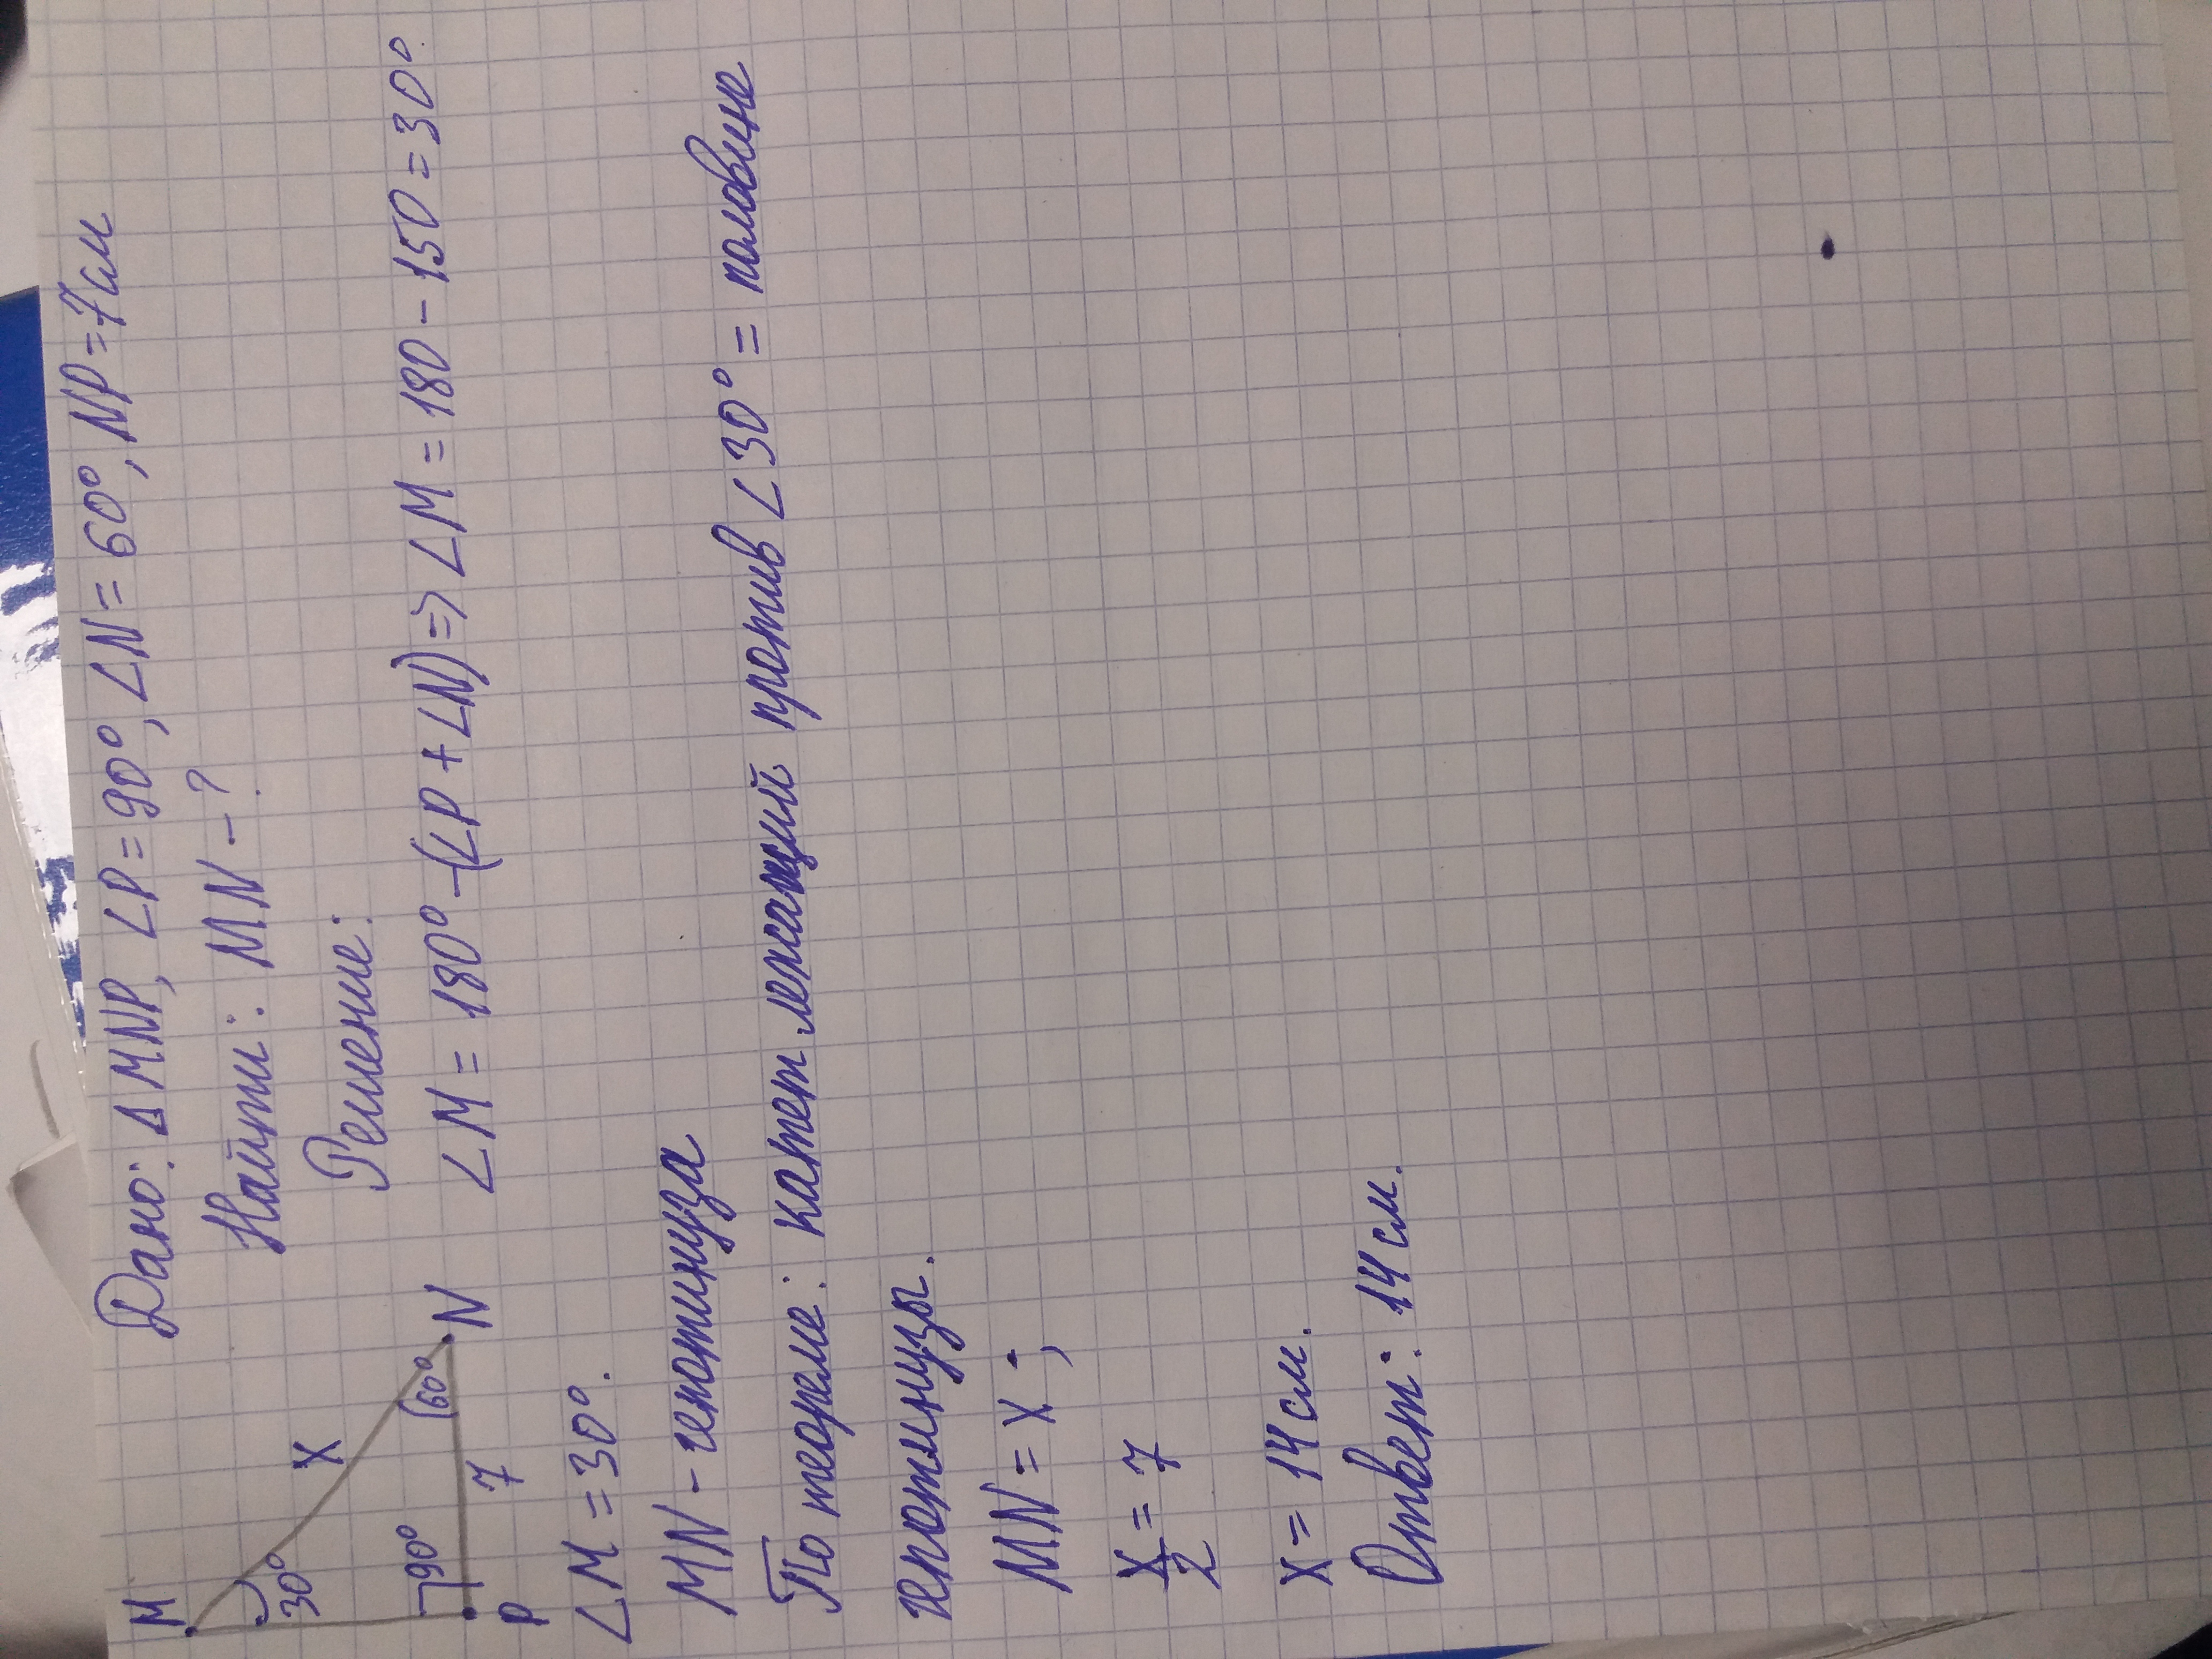 Дано: Δ MNP, ∠P = 90°, ∠N = 60°, NP = 7см
Найти: MN - ?
Решение:
∠M = 180° - (∠P + ∠N) => ∠M = 180 - 150 = 30°.
M
30°
X
90°
60°
P
7
N
∠M = 30°.
MN - гепотинуза
По теореме: катет лежащий против ∠30° = половине
гепотинузы.
MN = x ;
x/2 = 7
x = 14 см.
Ответ: 14 см.